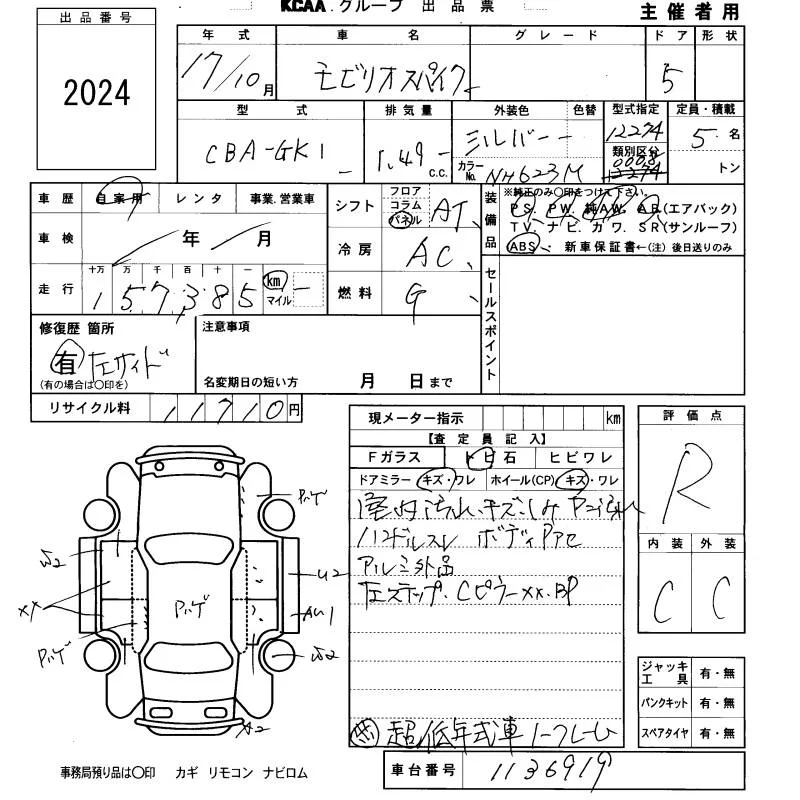 KCAA.グループ 出品票
主催者用
出品番号
2024
年式 車名 グレード ドア 形状
17/10月 モビリオスパイク 5
型式 排気量 外装色 色替 型式指定 定員・積載
CBA-GK1 1.49 c.c. シルバー 12274 5 名
カラーNo. NH623M 類別区分 0008 トン
車歴 自家用 レンタ 事業.営業車
シフト フロア コラム パネル AT
装備品 ※純正のみ○印をつけて下さい。
PS. PW. 純AW. AB(エアバック)
TV. ナビ. カワ. SR(サンルーフ)
ABS 新車保証書←(注)後日送りのみ
車検 年 月
冷房 AC
走行 十万 万 千 百 十 一
157,385 km マイル
燃料 G
セールスポイント
修復歴 箇所
有 左サイド
(有の場合は○印を)
注意事項
名変期日の短い方 月 日まで
リサイクル料 11710円
現メーター指示 km
【査定員記入】
Fガラス トビ石 ヒビワレ
ドアミラー キズ・ワレ ホイール(CP) キズ・ワレ
室内汚れ.キズ.
ハンドルスレ ボディ
アルミ外品
左ステップ.Cピラーxx.BP
超低年式車 ノークレーム
評価点
R
内装 外装
C C
ジャッキ工具 有・無
パンクキット 有・無
スペアタイヤ 有・無
U2
XX
AU1
A2
事務局預り品は○印 カギ リモコン ナビロム
車台番号 1136919